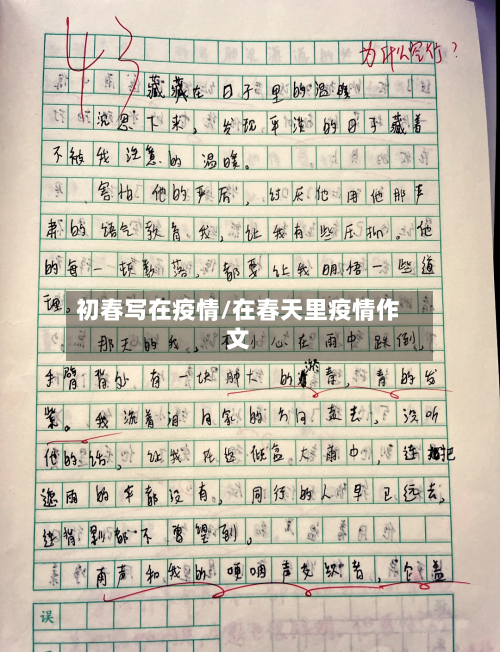 43
为什么空行?
藏藏在日子里的温暖
沉思下来,发现平淡的日子藏着
不被我注意的温暖。
害怕他的严厉,讨厌他用他那严
肃的语气教育我,让我有些压抑。他
的每一顿数落,都要让我明悟一些道
理。
初春写在疫情/在春天里疫情作
文
那天的我,不小心在雨中跌倒,
手臂背处有一块肿大的淤青,青的发
紫。我流着泪向家的方向走去,没听
他的话,让我在这倾盆大雨中,连把
遮雨的伞都没有,同行的人早已远去,
连背影都不曾望到,
雨声和我的哽咽声交织着,
误